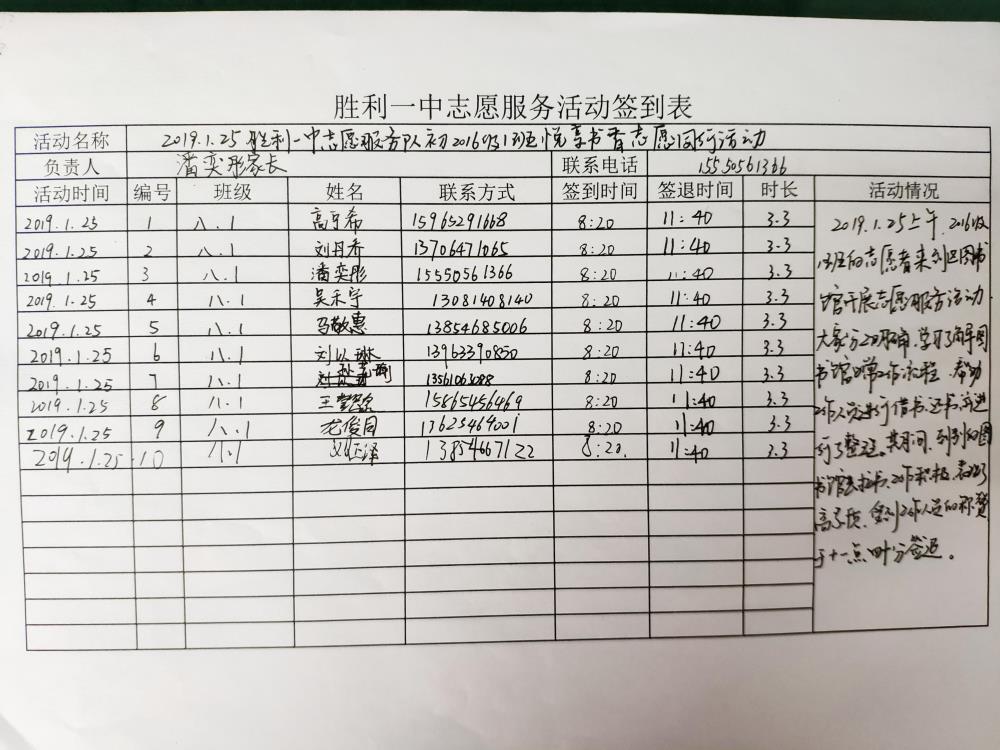 胜利一中志愿服务活动签到表
活动名称 2019.1.25胜利一中志愿服务队初2016级1班悦享书香志愿同行活动
负责人 潘奕彤家长 联系电话 15550561366
活动时间 编号 班级 姓名 联系方式 签到时间 签退时间 时长 活动情况
2019.1.25 1 八.1 高宇希 15965291668 8:20 11:40 3.3
2019.1.25 2 八.1 刘丹乔 13706471065 8:20 11:40 3.3
2019.1.25 3 八.1 潘奕彤 15550561366 8:20 11:40 3.3
2019.1.25 4 八.1 吴禾宇 13081408140 8:20 11:40 3.3
2019.1.25 5 八.1 马敬惠 13854685006 8:20 11:40 3.3
2019.1.25 6 八.1 刘以琳 13963390850 8:20 11:40 3.3
2019.1.25 7 八.1 13561063088 8:20 11:40 3.3
2019.1.25 8 八.1 王 15865456469 8:20 11:40 3.3
2019.1.25 9 八.1 尤俊同 17625469001 8:20 11:40 3.3
2019.1.25 10 八.1 刘恒泽 13854667122 8:20. 11:40 3.3
2019.1.25上午，2016级
1班的志愿者来到图书
馆开展志愿服务活动
大家分工明确，学习了解图
书馆日常工作流程，帮助
工作人员进行借书、还书，并进
行了整理。其间，同学们在图
书馆，工作积极，表现了
高素质，受到工作人员的称赞
于十一点四十分签退。